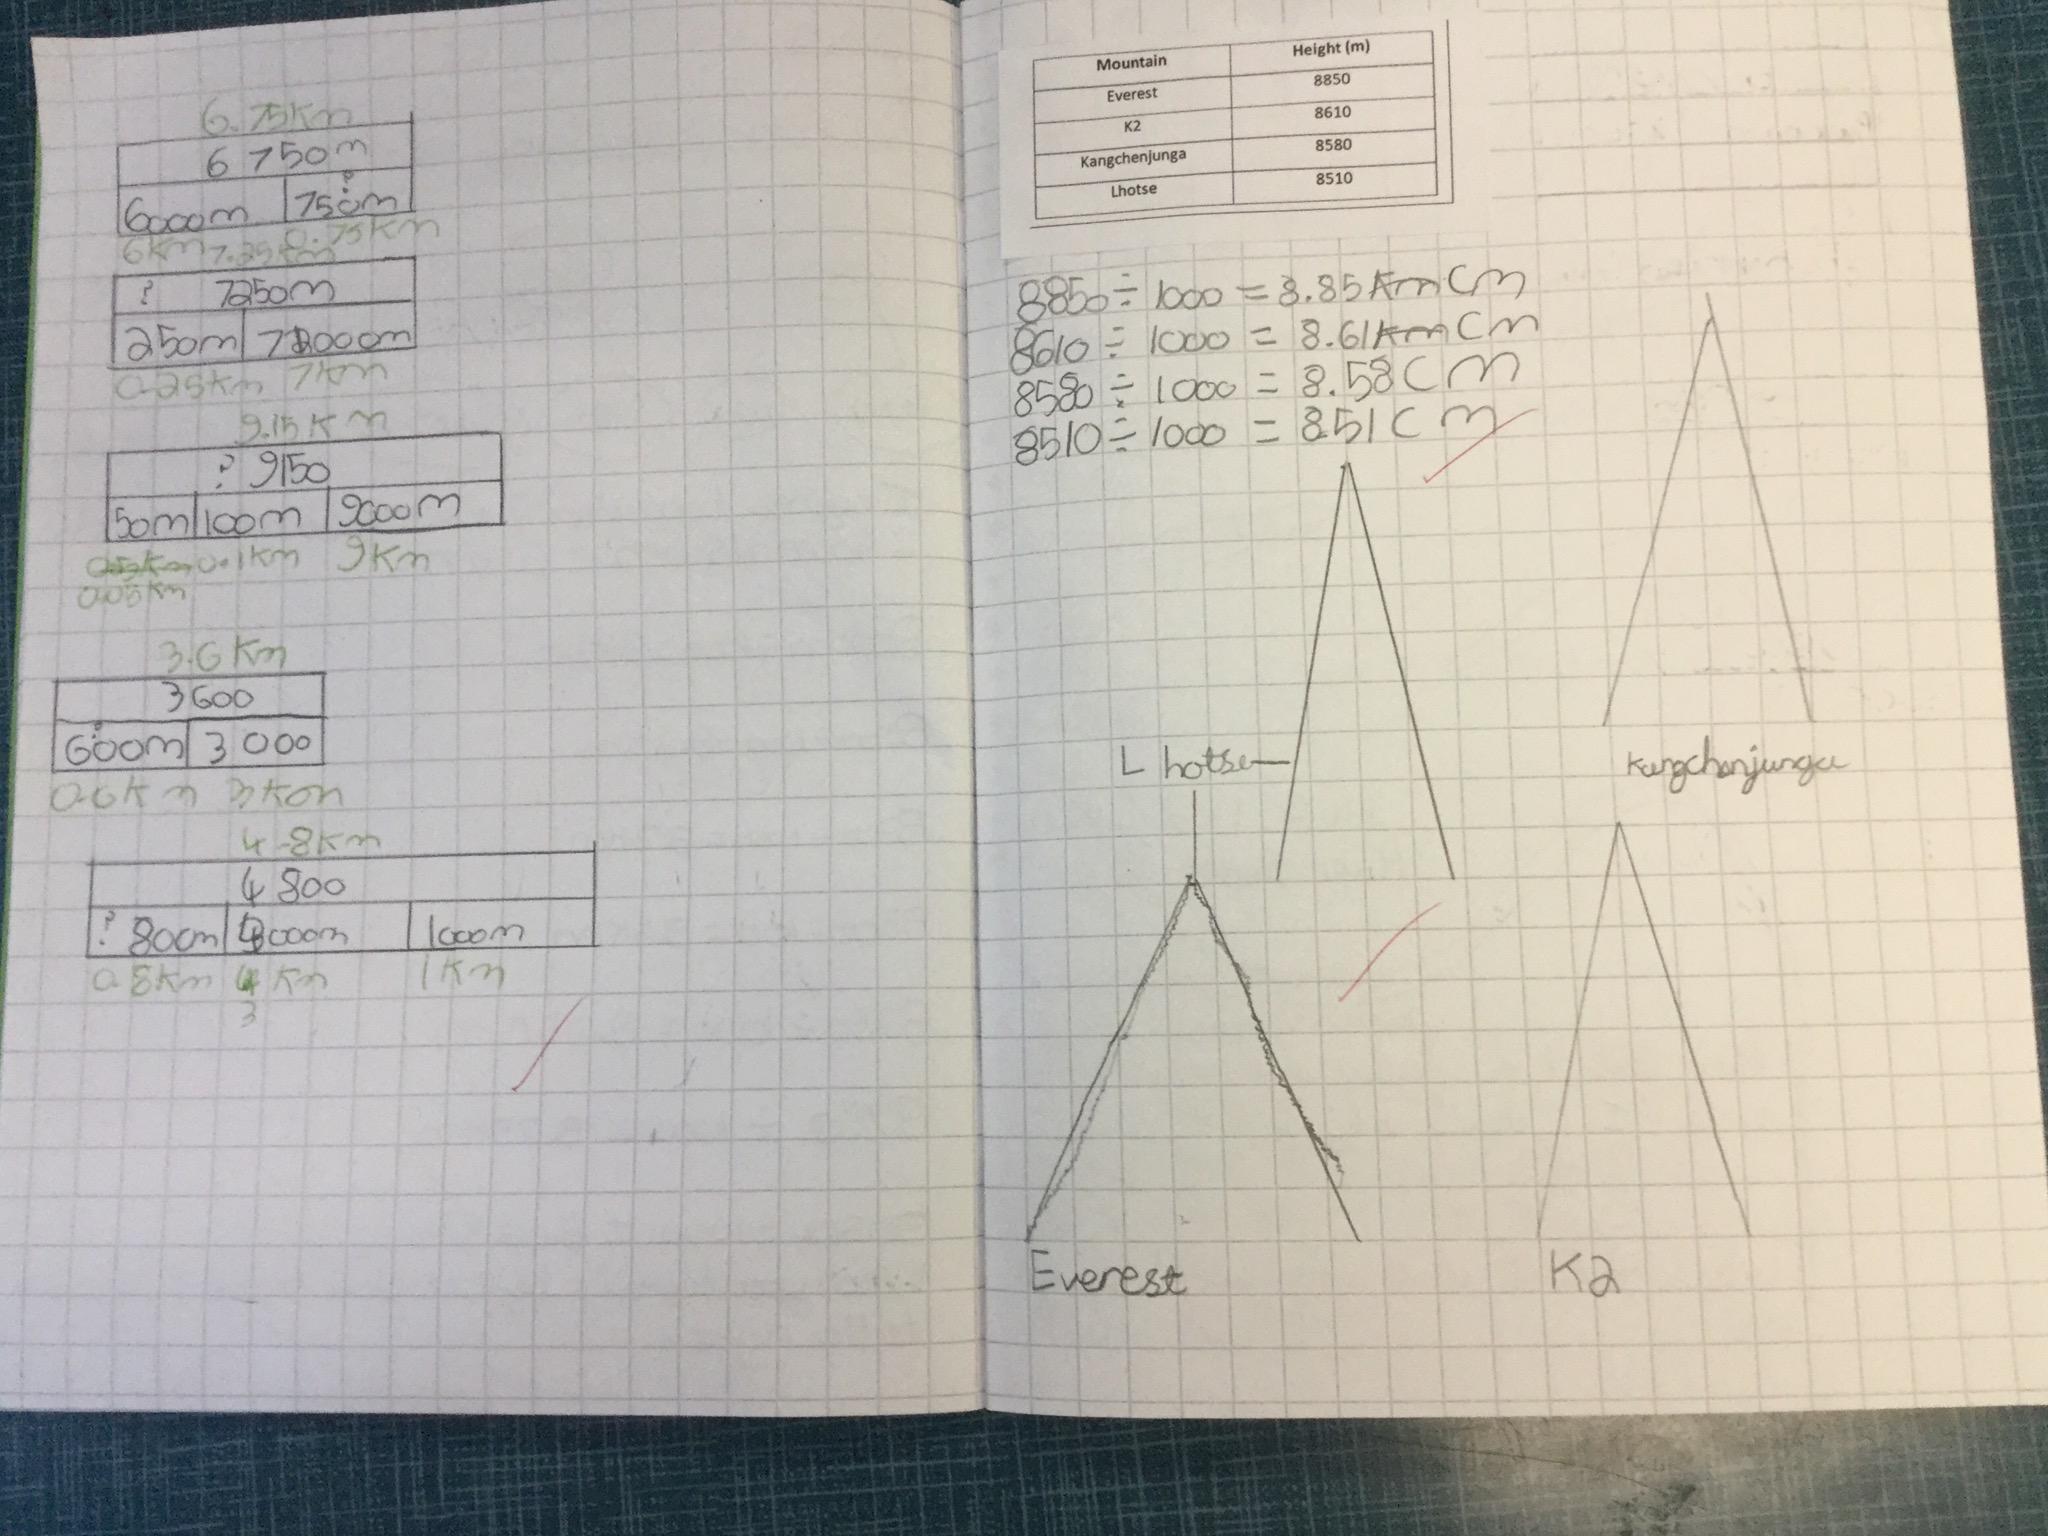 6.75Km
6 750m
?
6000m 750m
6Km 0.75Km
7.25Km
? 7250m
250m 7000m
0.25Km 7Km
9.15Km
? 9150
50m 100m 9000m
0.1Km 9Km
0.05Km
3.6Km
3600
?
600m 3 000
0.6Km 3Km
4.8Km
4 800
? 800m 3000m 1000m
0.8Km 4 Km 1Km
3
Mountain Height (m)
Everest 8850
K2 8610
Kangchenjunga 8580
Lhotse 8510
8850 ÷ 1000 = 8.85 Km Cm
8610 ÷ 1000 = 8.61 km Cm
8580 ÷ 1000 = 8.58 Cm
8510 ÷ 1000 = 8.51 Cm
Lhotse
Kangchanjunga
Everest
K2